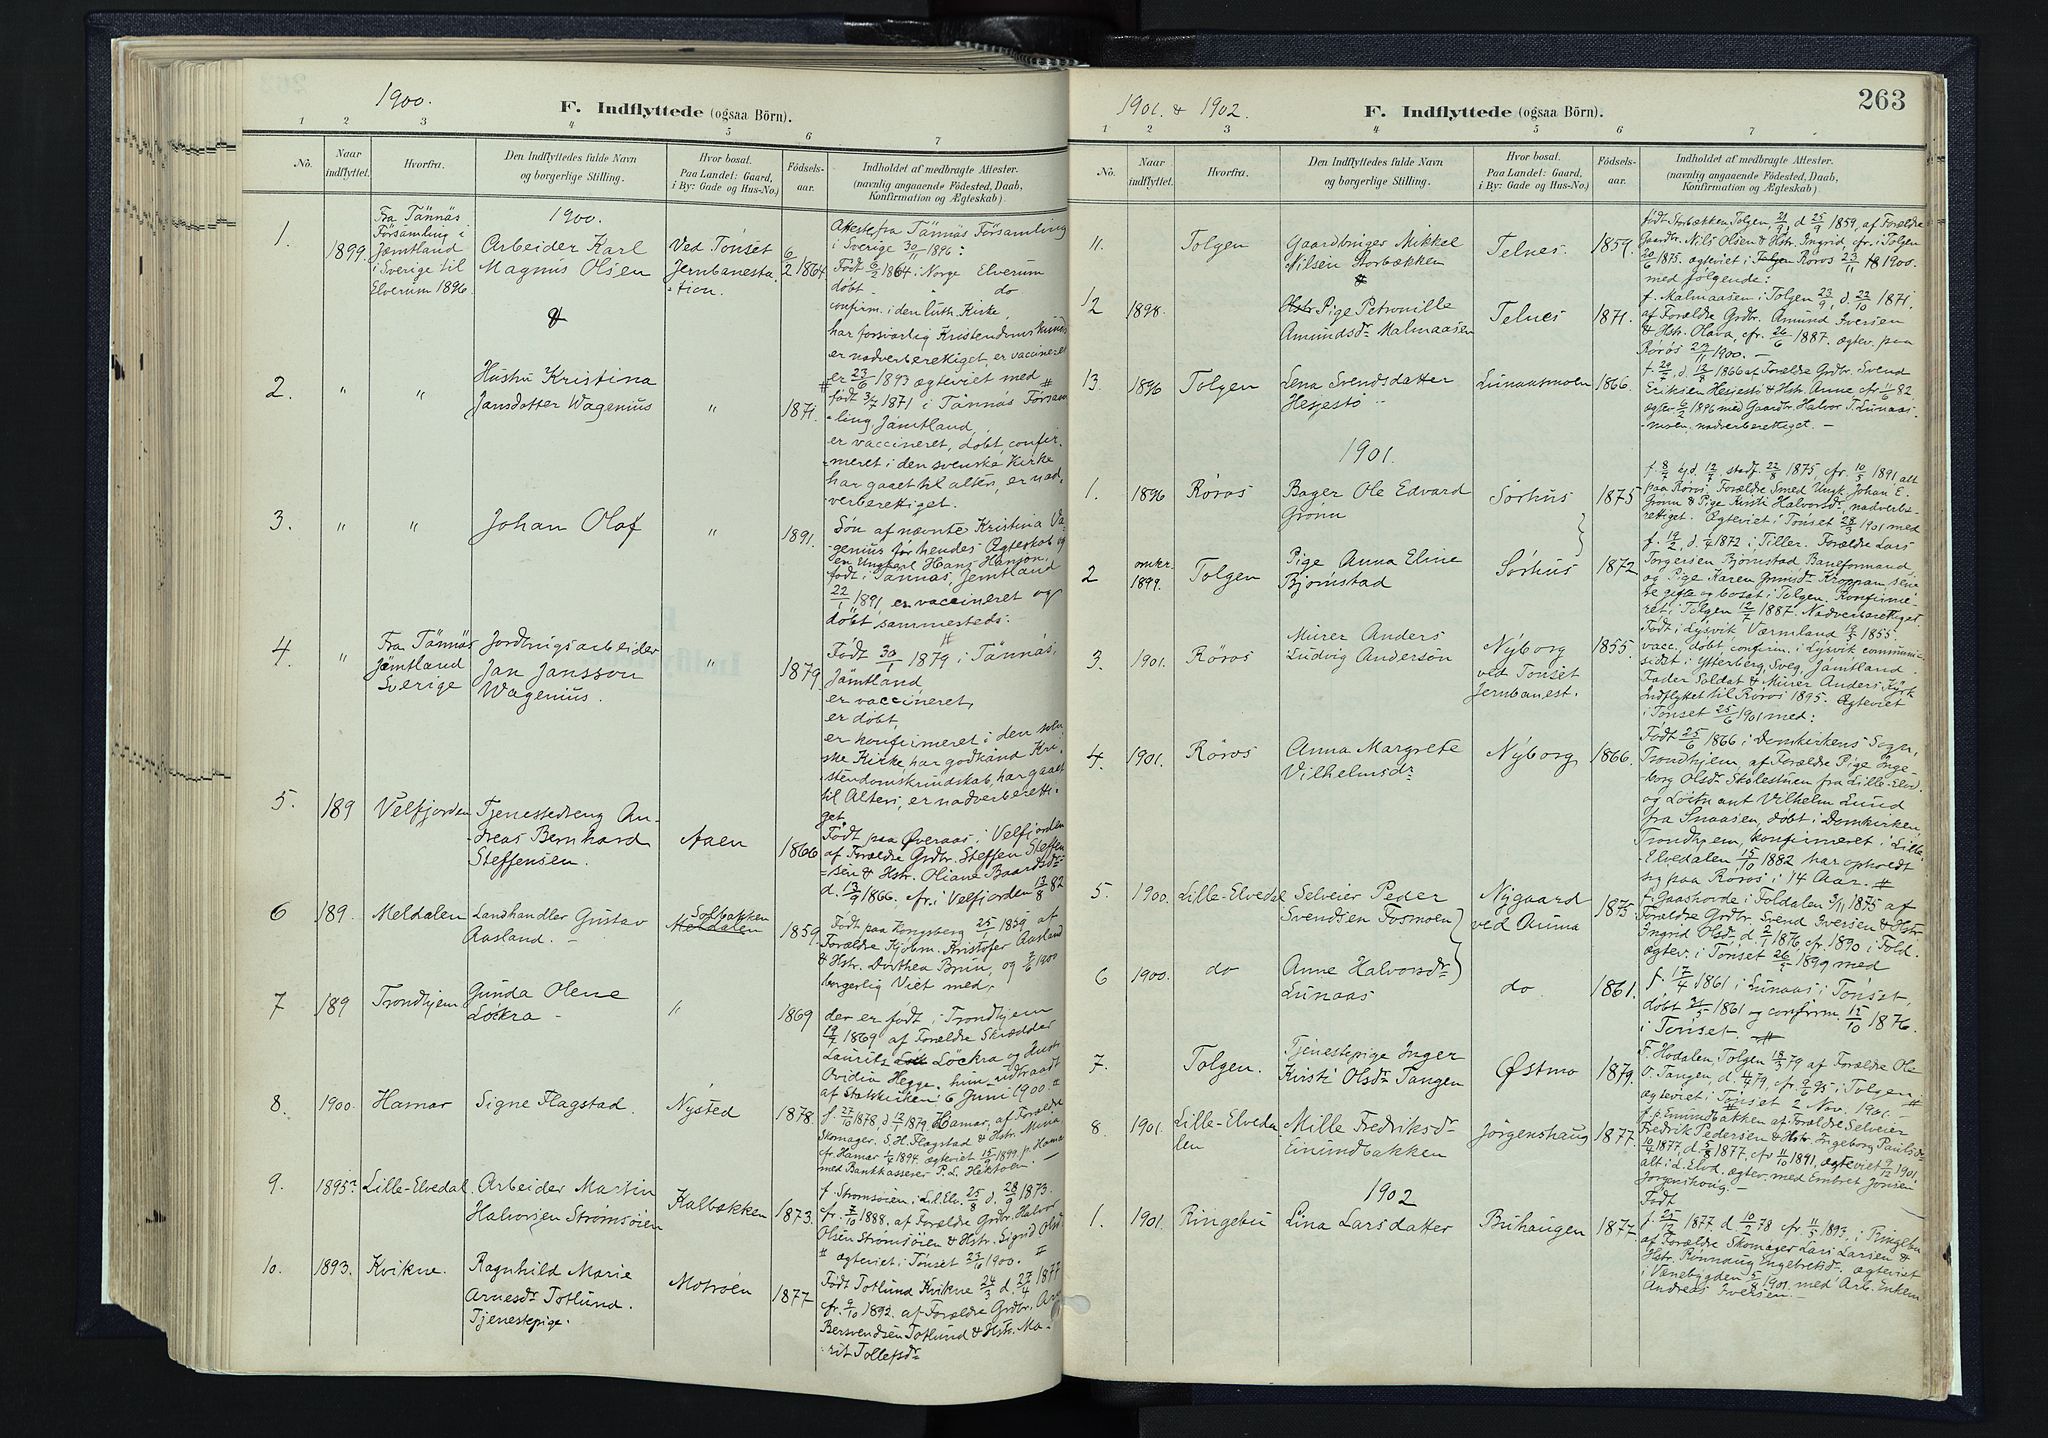 1900.
F. Indflyttede (ogsaa Börn).
1 2 3 4 5 6 7
No. Naar indflyttet. Hvorfra. Den Indflyttedes fulde Navn og borgerlige Stilling. Hvor bosat. Paa Landet: Gaard, i By: Gade og Hus-No.) Födsels-aar. Indholdet af medbragte Attester. (navnlig angaaende Födested, Daab, Konfirmation og Ægteskab)
1900.
1. 1899 Fra Tännäs Församling i Jæmtland i Sverige til Elverum 1896
Arbeider Karl
Magnus Olsen
Ved Tönset
Jernbanesta-
tion.
6/2 1864
Attest fra Tännäs Församling
i Sverige 30/11 1896:
Født 6/2 1864 i Norge Elverum
døbt do
confirm. i den luth. Kirke,
har forsvarlig Kristendomskunds
er nadverberettiget, er vaccineret
er 23/6 1893 ægteviet med
&
2. " " Hustru Kristina
Jansdatter Wagenius " 1871
født 3/7 1871 i Tännäs Försam
-ling, Jämtland,
er vaccineret, døbt, confir-
meret i den svenske Kirke
har gaaet til alters, er nad-
verberettiget.
3. " " Johan Olof " 1891.
Søn af nævnte Kristina Va-
genius før hendes Ægteskab og
en Ungkarl Hans Hanson,
født i Tännäs, Jemtland
22/1 1891, er vaccineret og
døbt sammesteds.
4. " Fra Tännäs
Jämtland
Sverige
Jordbrugsarbeider
Jan Jansson
Wagenius. " 1879
Født 30/1 1879 i Tännäs,
Jämtland
er vaccineret,
er døbt,
er konfirmeret i den sven-
ske Kirke, har godkänd Kri-
stendomskundskab, har gaaet
til Alters, er nadverberetti-
get.
5. 189 Velfjorden Tjenestedreng An-
dreas Bernhard
Steffensen. Aaen 1866
Født paa Øveraas i Velfjorden
af Forældre Grdbr. Steffen Steffen
-sen & Hstr. Oliane Baardsdr
d. 13/9 1866. cfr. i Velfjorden 13/8 82
6 189. Meldalen Landhandler Gustav
Aasland. — Solbakken
Meldalen 1859
Født paa Kongsberg 25/1 1859 af
Forældre Kjøbm. Kristofer Aasland
& Hstr. Dorthea Brun, og 7/6 1900
borgerlig Viet med,
7 189 Trondhjem Gunda Olene
Löckra — " 1869
der er født i Trondhjem
19/7 1869 af Forældre Skrædder
Laurits Löckra og Hustr
Ovidia Hegge. hun udtraadt
af Statskirken 6 Juni 1900.
8. 1900. Hamar Signe Flagstad. Nysted 1878
f. 27/10 1878, d 12/1 1879 Hamar, af Forældre
Skomager S. H. Flagstad & Hstr. Mina
cfr. Hamar 1/4 1894. ægteviet 15/9 1899 p. Hamar
med Bankkasserer P. L. Hektoen. —
9. 1895 Lille-Elvedal. Arbeider Martin
Halvorsen Strømsöien Kalbækken 1873.
f. Strømsöien i Lil. Elv. 25/8 d. 28/9 1873.
cfr. 7/10 1888. af Forældre Grdbr. Halvor
Olsen Strømsöien & Hstr. Sigrid Olsdr
ægteviet i Tønset 23/6 1900.
10. 1893. Kvikne. Ragnhild Marie
Arnesdr Totlund.
Tjenestepige. Motröen 1877
Født Totlund Kvikne 24/3 d. 27/4 1877
cfr. 9/10 1892. af Forældre Grdbr. Arn
Bersvendsen Totlund & Hstr. Ma-
rit Tollefsdr
1901. & 1902.
F. Indflyttede (ogsaa Börn).
263
1 2 3 4 5 6 7
No. Naar indflyttet. Hvorfra. Den Indflyttedes fulde Navn og borgerlige Stilling. Hvor bosat. Paa Landet: Gaard, i By: Gade og Hus-No.) Födsels-aar. Indholdet af medbragte Attester. (navnlig angaaende Födested, Daab, Konfirmation og Ægteskab)
11. Tolgen Gaardbruger Mikkel
Nilsen Storbækken Telnes 1859.
født Storbækken Tolgen, 21/9, d 25/9 1859, af Forældre
Gaardbr. Nils Olsen & Hstr. Ingrid, cfr. i Tolgen
20/6 1875. ægteviet i Tolgen Röros 23/11 1900.
med følgende:
&
12 1898. Hstr Pige Petronille
Amundsdr Malmaasen Telnes 1871.
f. Malmaasen i Tolgen 23/9, d. 22/10 1871.
af Forældre Grdbr. Amund Iversen
& Hstr. Olava, cfr. 26/6 1887. ægtev. paa
Rörös 23/11 1900. —
13. 1896 Tolgen Lena Svendsdatter
Hesjestö Lunaasmoen 1866.
f. 20/7, d. 13/8 1866 af Forældre Grdbr. Svend
Eriksen Hesjestö & Hstr. Anne cfr. 11/6 82
ægtev. 6/2 1896 med Gaardbr. Halvor T. Lunaas-
moen, nadverberettiget. —
1901.
1. 1896 Røros Bager Ole Edvard
Grönn Sörhus 1875
f. 8/7 hjd. 12/7 stadf. 22/8 1875 cfr. 10/5 1891, alt
paa Røros, Forældre Smed Ungk. Johan E.
Grönn & Pige Kirsti Halvorsdr, nadverbe-
rettiget. Ægteviet i Tønset 28/3 1901 med
2 omkr. 1899. Tolgen Pige Anna Eline
Bjørnstad Sørhus 1872
f. 19/2, d. 1/4 1872 i Tiller. Forældre Lars
Torgersen Bjørnstad Baneformand,
og Pige Karen Grimsdr Kroppan sene
re gifte og bosat i Tolgen. Konfirme-
ret i Tolgen 12/7 1887. Nadverberettiget.
3. 1901. Røros Murer Anders
Ludvig Anderson Nÿborg
ved Tönset
Jernbanest. 1855.
Født i Lysvik Värmland 19/5 1855.
vacc., døbt, confirm. i Lysvik, communi-
sidst i Ytterberg, Sveg, Jämtland
Fader Soldat & Murer Anders Kyrk
Indflyttet til Røros 1895. Ægteviet
i Tönset 25/6 1901 med:
4. 1901. Røros Anna Margrete
Vilhelmsdr Nÿborg 1866.
Født 25/6 1866 i Domkirkens Sogn,
Trondhjem, af Forældre Pige Inge-
borg Olsdr Skolestuen fra Lille-Elvd.
og Løitnant Vilhelm Lund
fra Snaasen, døbt i Domkirken,
Trondhjem, konfirmeret i Lille-
Elvedalen 15/10 1882 har opholdt
sig paa Røros i 14 Aar.
5. 1900. Lille-Elvedal Selveier Peder
Svendsen Fosmoen Nygaard
ved Auma 1875
f. Gaashovde i Foldalen 3/11 1875 af
Forældre Grdbr. Svend Iversen & Hstr.
Ingrid Olsdr, d 2/1 1876, cfr. 1890 i Fold.
ægtev. i Tønset 26/5 1899 med
6 1900. do Anne Halvorsdr
Lunaas do 1861.
f. 17/4 1861 i Lunaas i Tønset,
døbt 31/5 1861 og confirm. 15/10 1876.
i Tønset.
7. Tolgen. Tjenestepige Inger
Kirsti Olsdr Tangen Østmo 1879.
f. Hodalen Tolgen 18/3 79 af Forældre Ole
O. Tangen, d. 4/4 79, cfr. 9/6 95 i Tolgen
ægteviet i Tönset 2 Nov. 1901.
8. 1901. Lille-Elveda-
len Mille Fredriksdr
Einundbakken Jörgenshaug 1877.
f. p. Einundbakken af Forældre Selveier
Fredrik Pedersen & Hstr. Ingeborg Paulsdr
10/4 1877, d. 5/8 1877, cfr 11/10 1891, ægteviet 9/12 1901.
alt i L. Elvd. ægtev. med Embret Jonsen
Jørgenshoug. —
1902
1. 1901. Ringebu Lina Larsdatter Buhaugen 1877.
Født
f. 25/12 1877 d 10/2 78 cfr 11/5 1893, i Ringebu
af Forældre Skomager Lars Larsen &
Hstr. Rønnaug Engebretsdr. ægteviet
i Venebygden 5/8 1901 med Arb. Enkem
Andreas Iversen. —